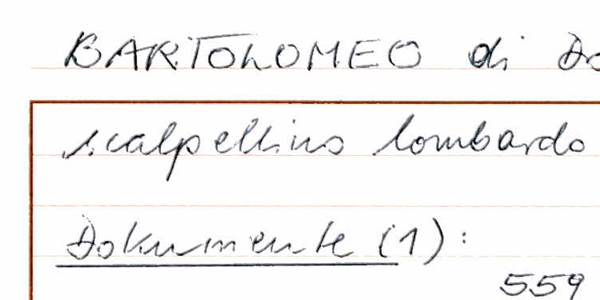 BARTOLOMEO di Do
scalpellino lombardo
Dokumente (1):
559